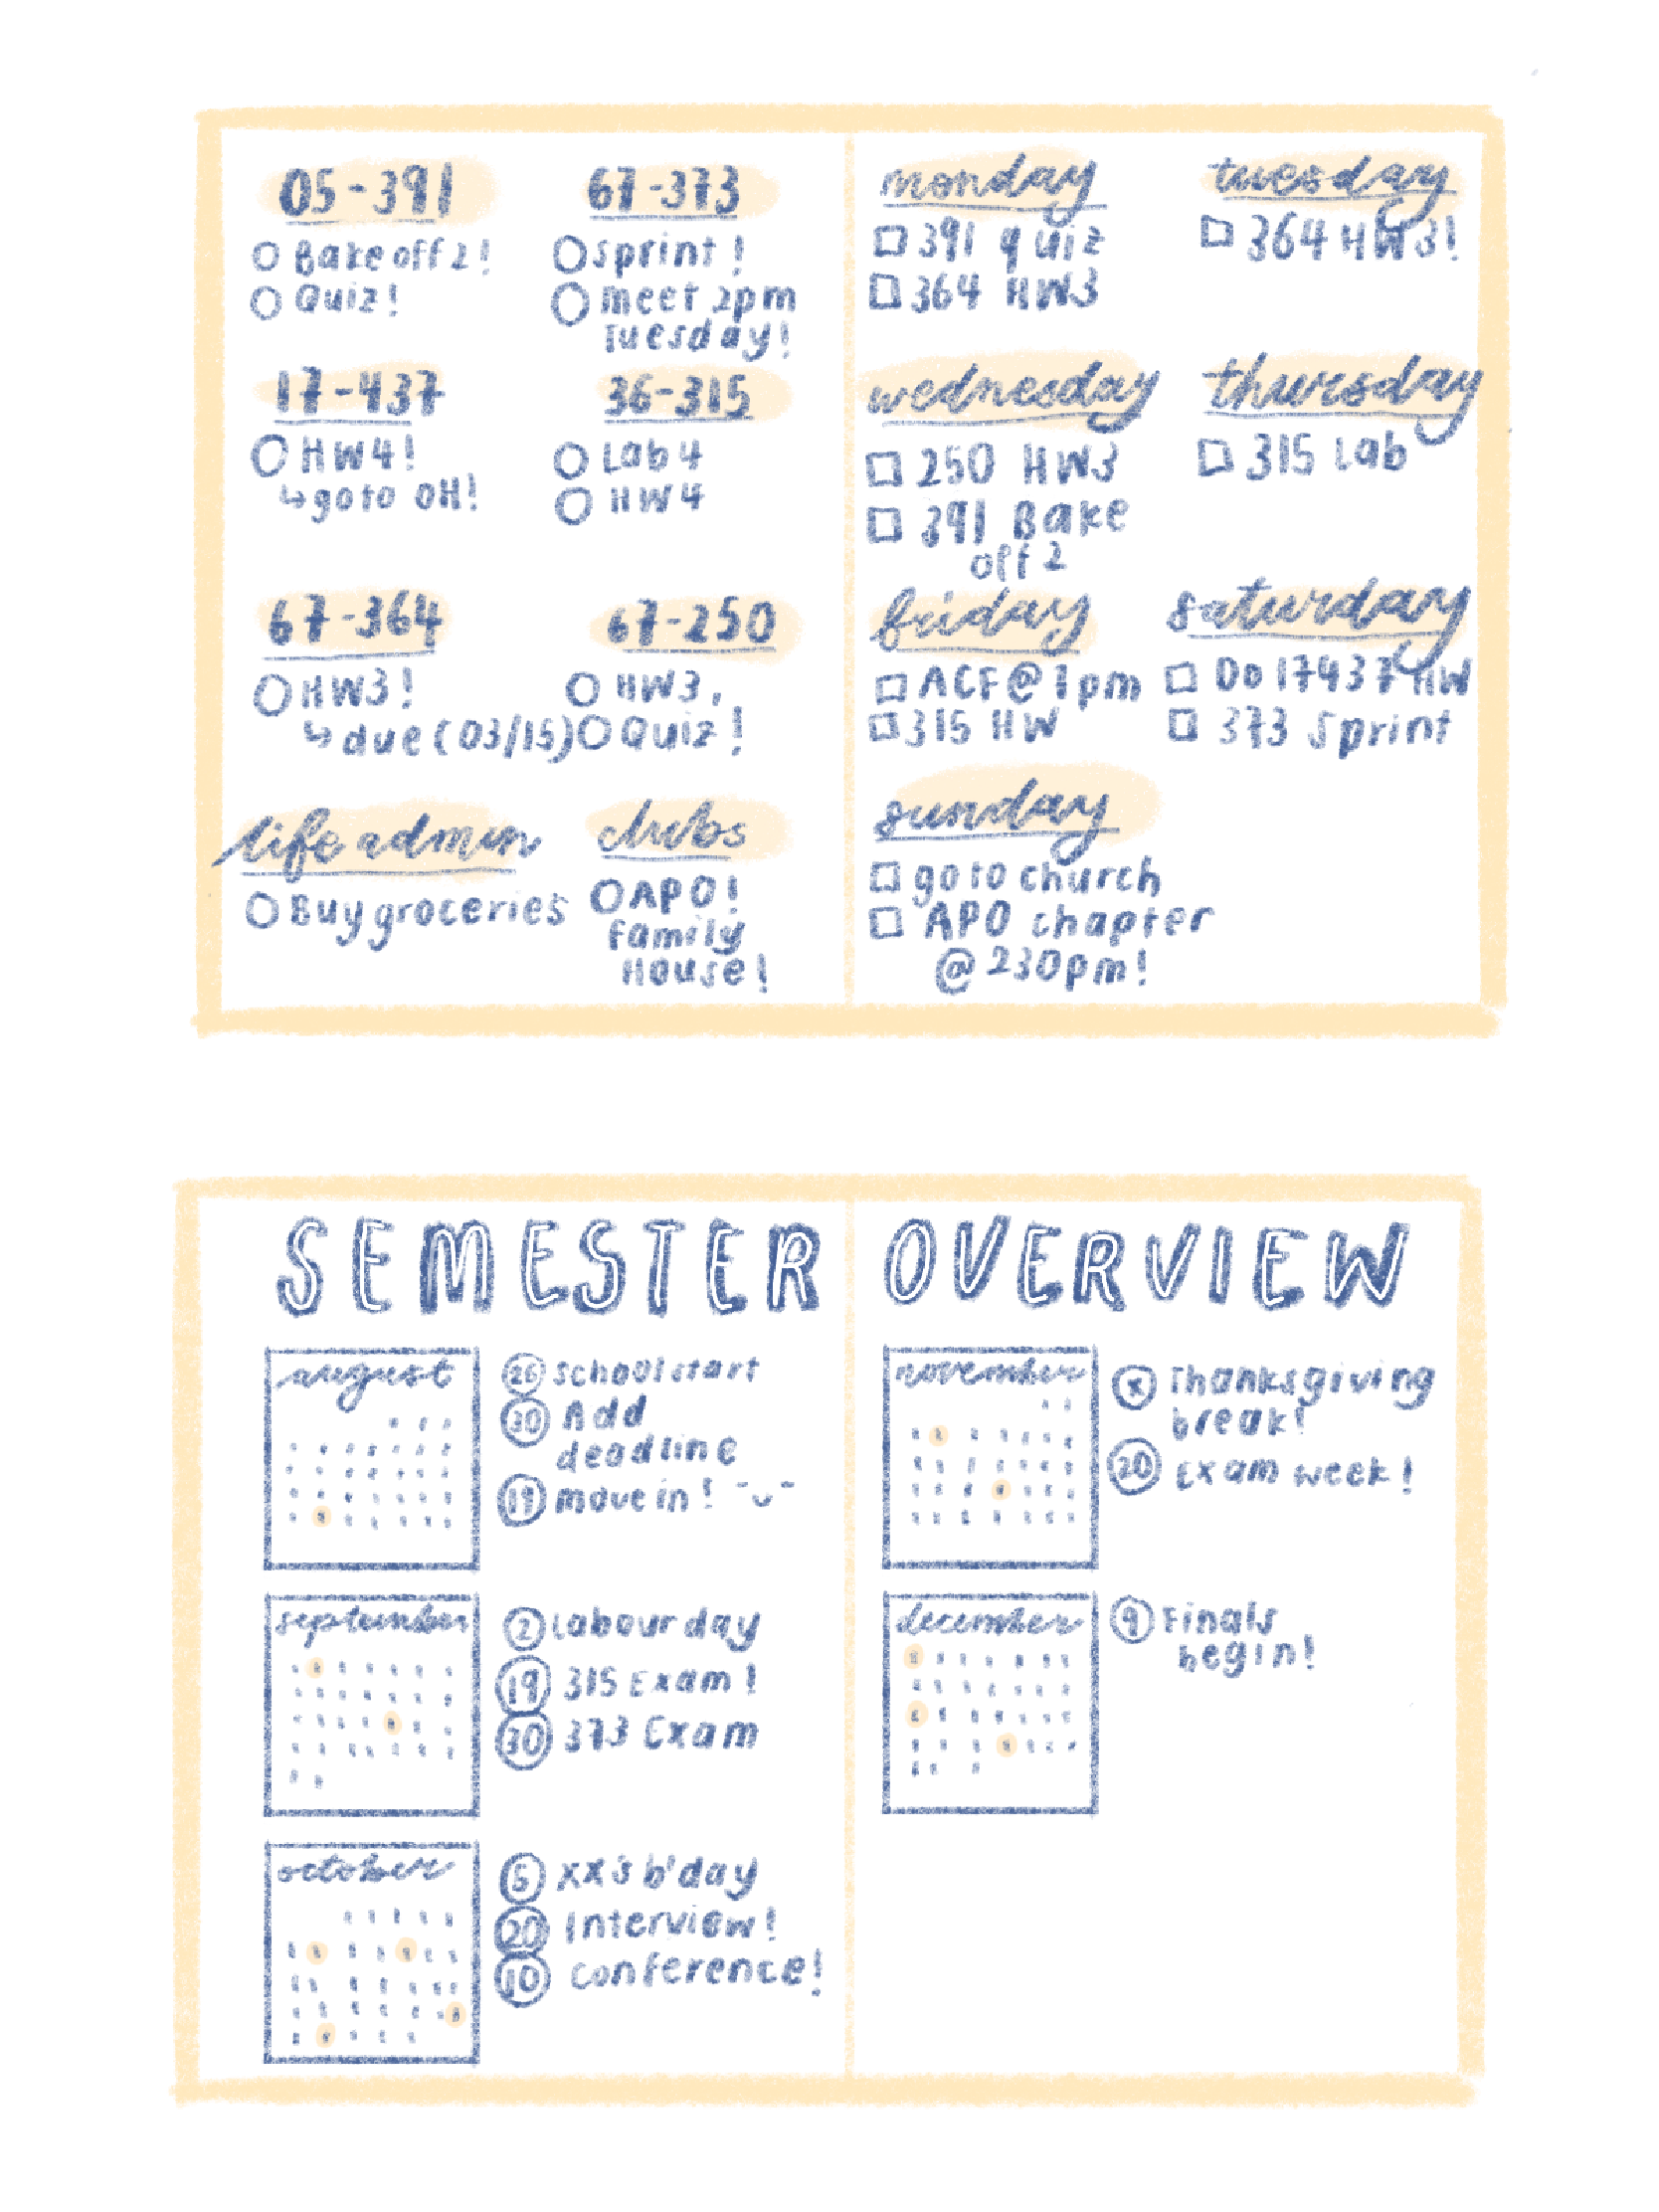 05-391
Bake off 2!
Quiz!
67-373
Sprint!
meet 2pm
Tuesday!
17-437
HW4!
↳ go to OH!
36-315
Lab 4
HW4
67-364
HW3!
↳ due (03/15)
67-250
HW3,
Quiz!
life admin
Buy groceries
clubs
APO!
family
House!
monday
391 quiz
364 HW3
tuesday
364 HW3!
wednesday
250 HW3
391 Bake
off 2
thursday
315 Lab
friday
ACF @ 1pm
315 HW
saturday
Do 17437 HW
373 Sprint
sunday
go to church
APO chapter
@ 230pm!
SEMESTER OVERVIEW
august
26 School start
30 Add
deadline
19 move in!
september
2 Labour day
19 315 Exam!
30 373 Exam
october
5 xx's b'day
20 Interview!
10 conference!
november
x Thanksgiving
break!
20 Exam week!
december
9 Finals
begin!